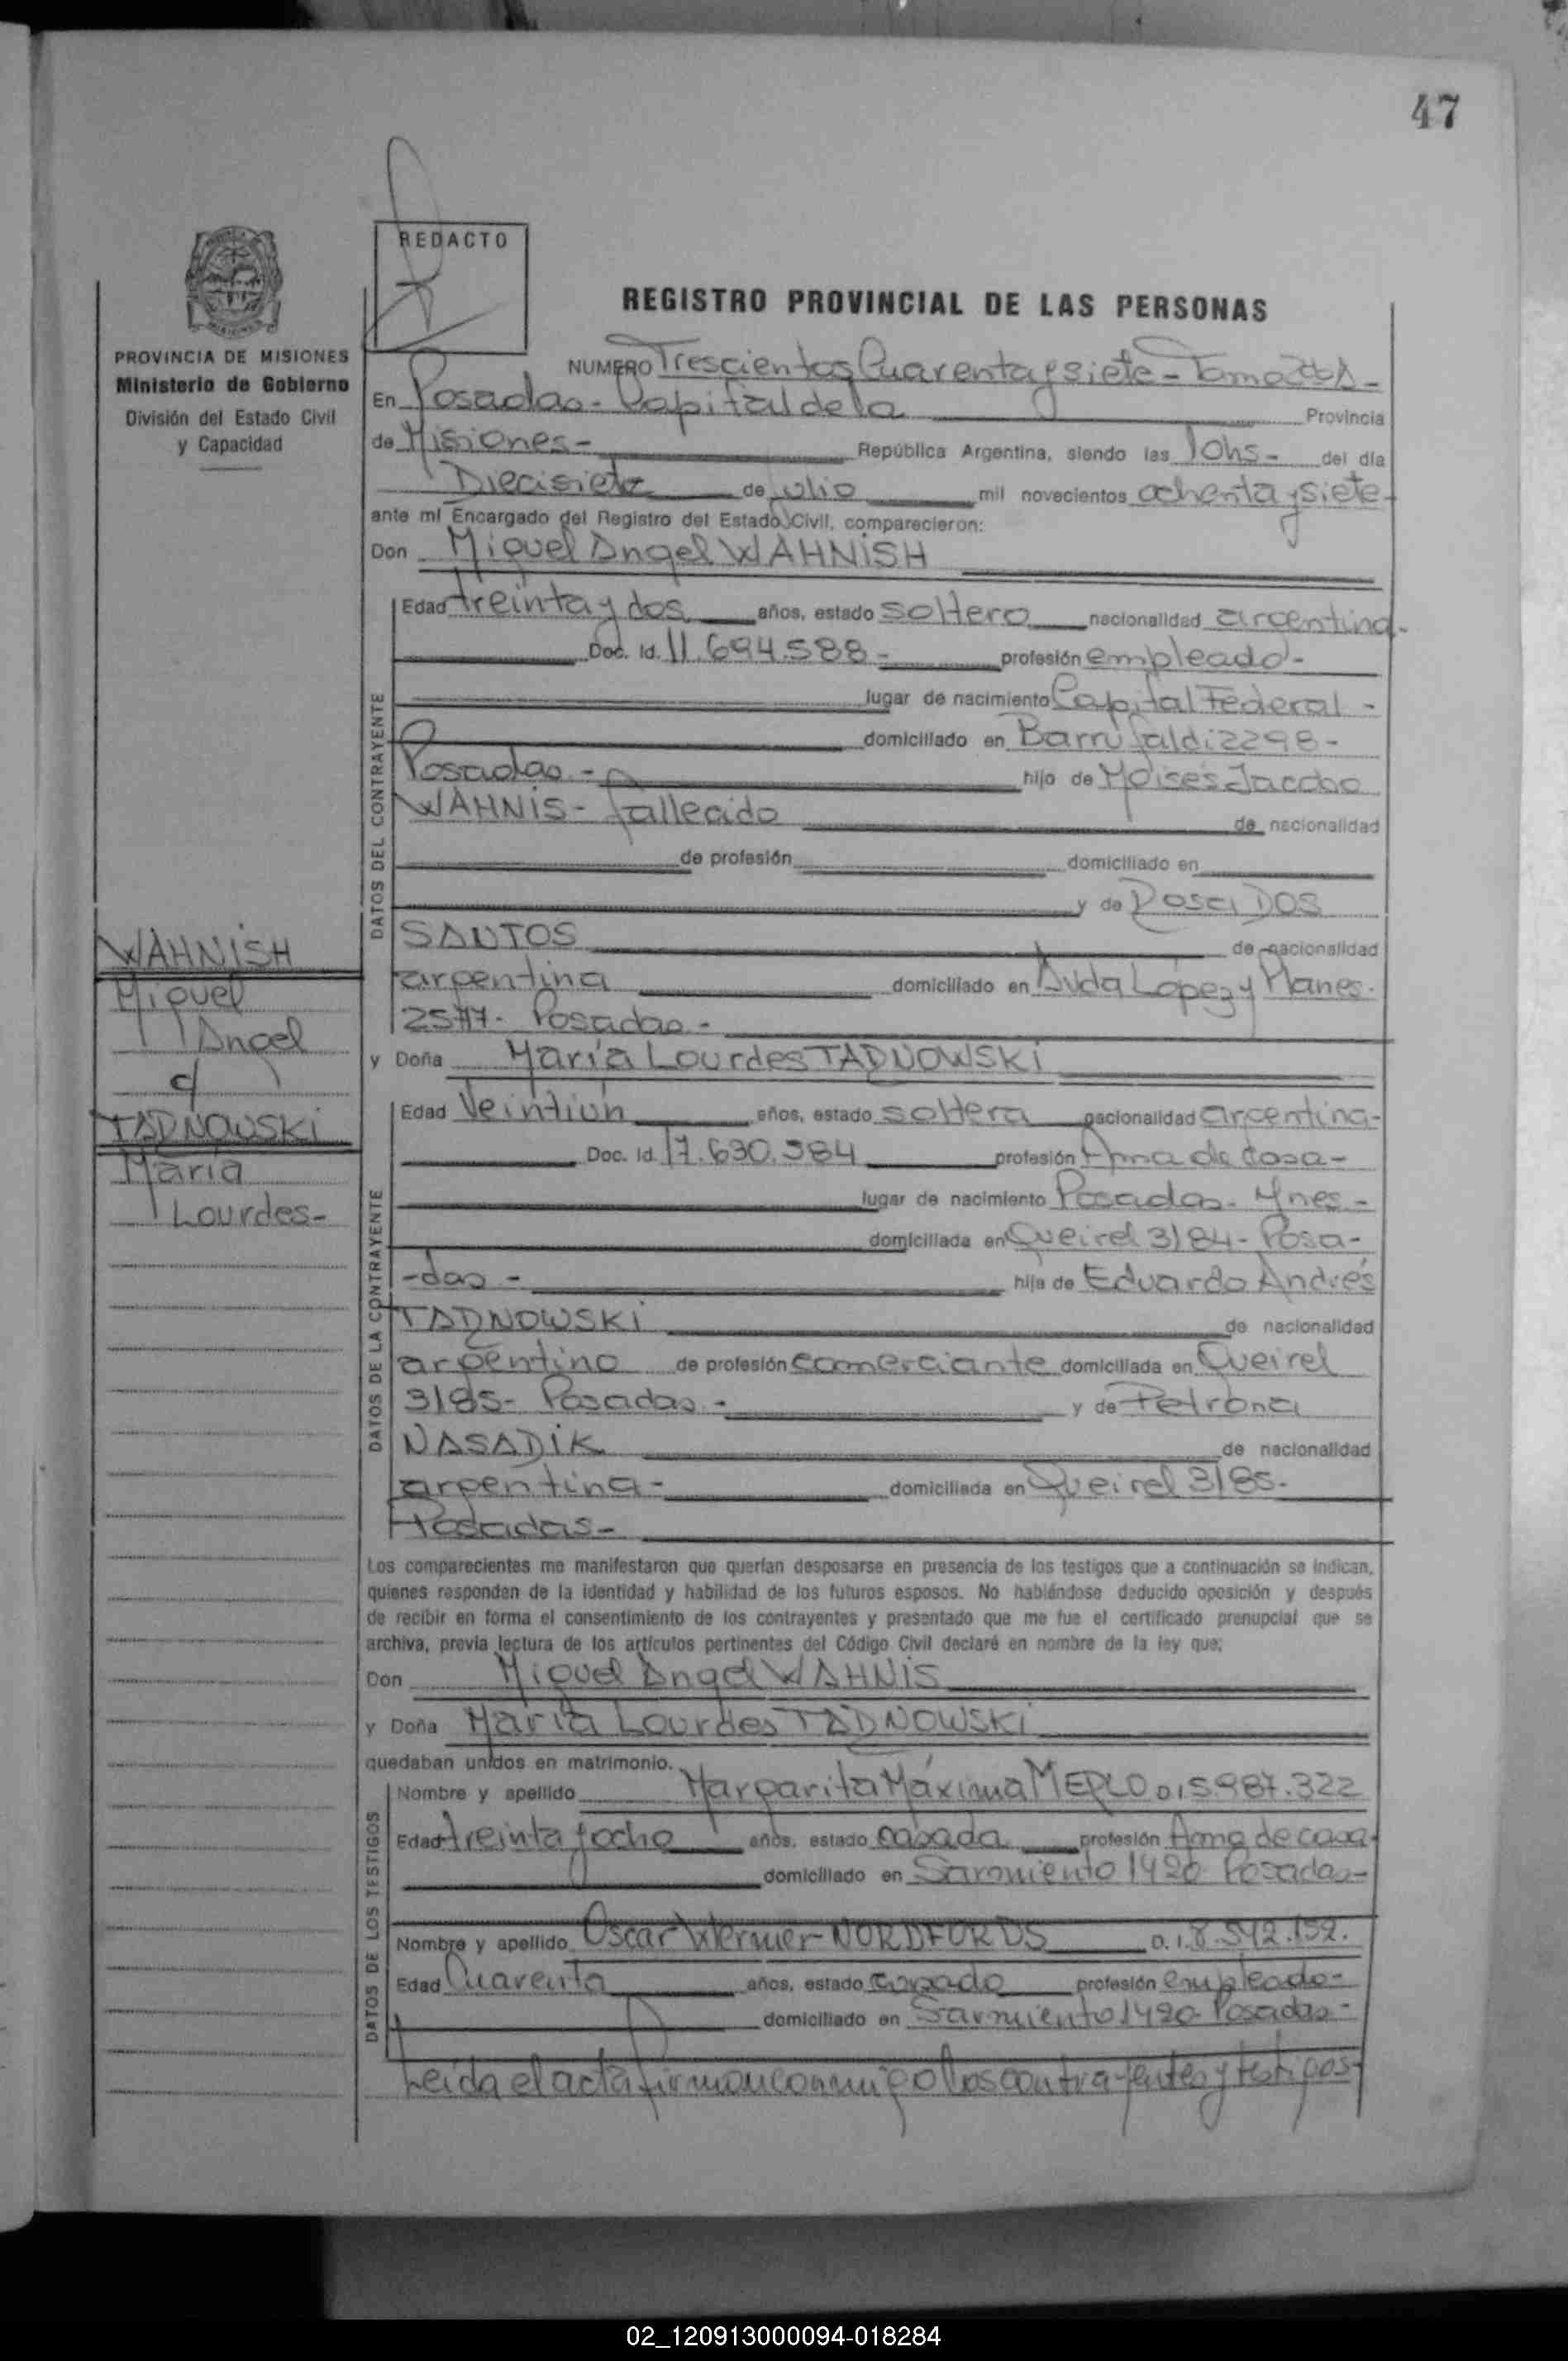 47
REDACTO
REGISTRO PROVINCIAL DE LAS PERSONAS
PROVINCIA DE MISIONES
Ministerio de Gobierno
División del Estado Civil
y Capacidad
NUMERO Trescientos Cuarenta y siete - Tomo
En Posadas - Capital de la Provincia
de Misiones - República Argentina, siendo las 10hs - del día
Diecisiete de julio mil novecientos ochenta y siete -
ante mí Encargado del Registro del Estado Civil, comparecieron:
Don Miguel Angel WAHNISH
Edad treinta y dos años, estado soltero nacionalidad argentina -
Doc. Id. 11.694.588 - profesión empleado -
lugar de nacimiento Capital Federal -
domiciliado en Barrufaldi 2298 -
Posadas - hijo de Moisés Jacobo
WAHNIS - fallecido de nacionalidad
de profesión domiciliado en
y de
SANTOS de nacionalidad
argentina domiciliado en Avda López y Planes -
Posadas -
y Doña María Lourdes TADNOWSKI
Edad Veintiún años, estado soltera nacionalidad argentina -
Doc. Id. 17.630.384 profesión Ama de casa -
lugar de nacimiento Posadas - Mnes -
domiciliada en Queirel 3184 - Posa -
- das - hija de Eduardo Andrés
TADNOWSKI de nacionalidad
argentino de profesión comerciante domiciliada en Queirel
3185 - Posadas - y de Petrona
NASADIK de nacionalidad
argentina - domiciliada en Queirel 3185 -
Posadas -
DATOS DEL CONTRAYENTE
DATOS DE LA CONTRAYENTE
WAHNISH
Miguel
Angel
c/
TADNOWSKI
María
Lourdes -
Los comparecientes me manifestaron que querían desposarse en presencia de los testigos que a continuación se indican,
quienes responden de la identidad y habilidad de los futuros esposos. No habiéndose deducido oposición y después
de recibir en forma el consentimiento de los contrayentes y presentado que me fue el certificado prenupcial que se
archiva, previa lectura de los artículos pertinentes del Código Civil declaré en nombre de la ley que;
Don Miguel Angel WAHNIS
y Doña María Lourdes TADNOWSKI
quedaban unidos en matrimonio.
Nombre y apellido Margarita Máxima MERLO D.I 5.987.322
Edad treinta y ocho años, estado casada profesión Ama de casa -
domiciliado en Sarmiento 1420 Posadas -
Nombre y apellido Oscar Werner NORDFORDS D.I. 8.542.152.
Edad Cuarenta años, estado casado profesión empleado -
domiciliado en Sarmiento 1420 - Posadas -
DATOS DE LOS TESTIGOS
Leída el acta firman conmigo los contrayentes y testigos -
02_120913000094-018284